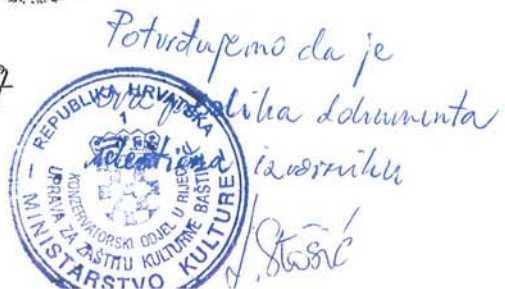 Potvrđujemo da je
ova preslika dokumenta
identična izvorniku
Stošić
REPUBLIKA HRVATSKA
1
MINISTARSTVO KULTURE
UPRAVA ZA ZAŠTITU KULTURNE BAŠTINE
KONZERVATORSKI ODJEL U RIJECI